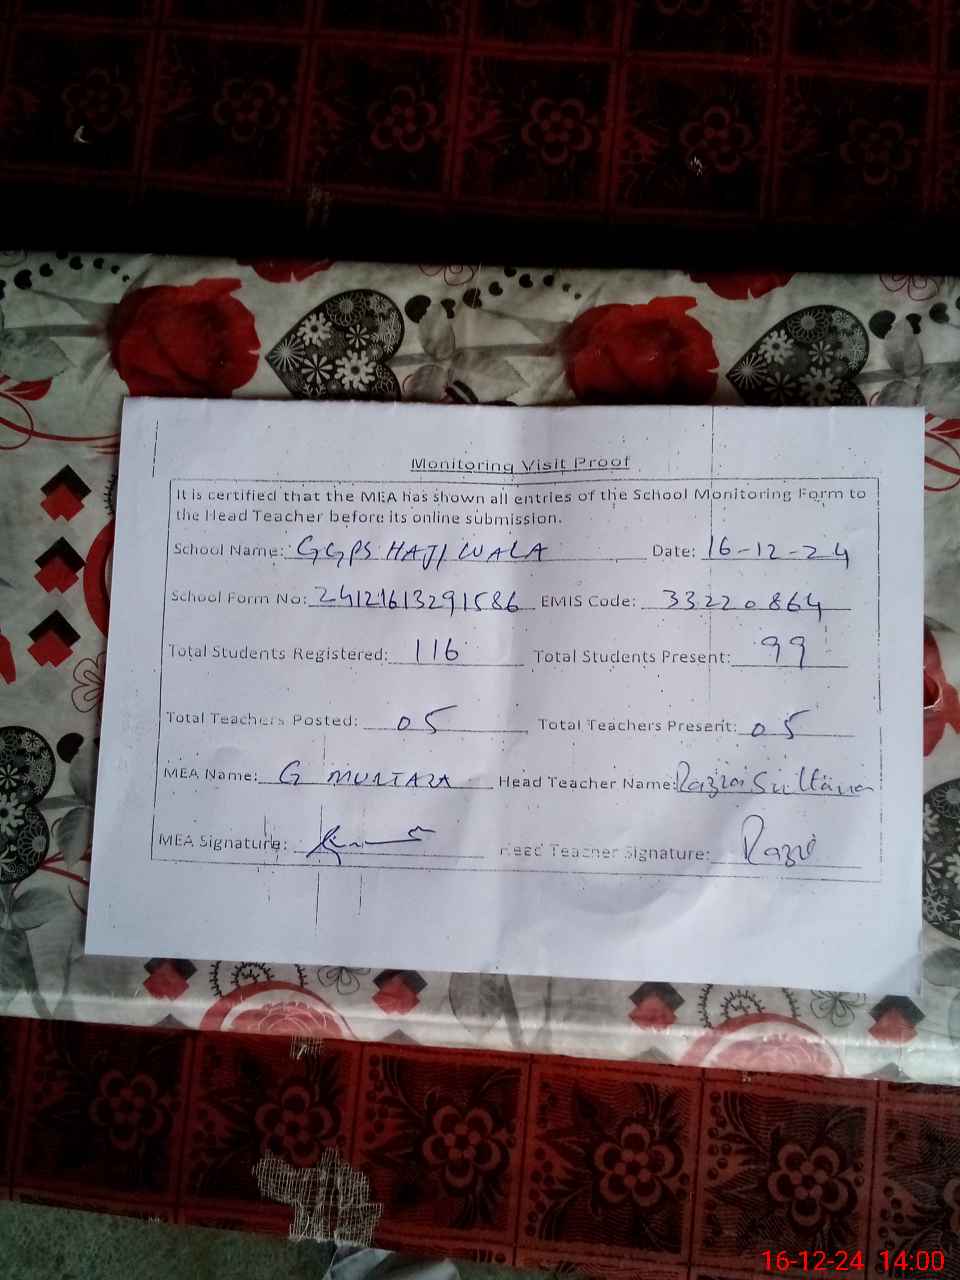 Monitoring Visit Proof
It is certified that the MEA has shown all entries of the School Monitoring Form to
the Head Teacher before its online submission.
School Name: GGPS HAJI WALA Date: 16-12-24
School Form No: 24121613291586 EMIS Code: 33220864
Total Students Registered: 116 Total Students Present: 99
Total Teachers Posted: 05 Total Teachers Present: 05
MEA Name: G MURTAZA Head Teacher Name: Razia Sultana
MEA Signature: Head Teacher Signature:
16-12-24 14:00